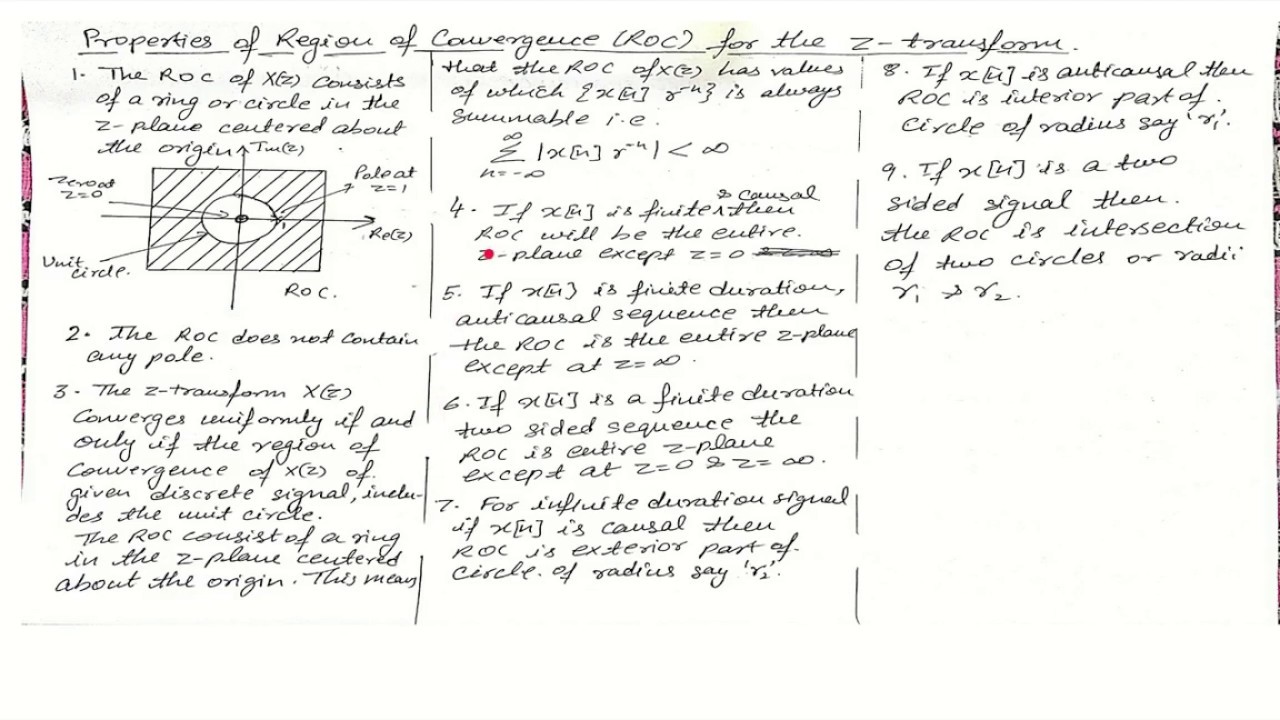 Properties of Region of Convergence (ROC) for the z-transform.
1. The ROC of X(z) consists
of a ring or circle in the
z-plane centered about
the origin.
Im(z)
Zero at
z=0
Pole at
z=1
1
Re(z)
Unit
circle.
ROC.
2. The ROC does not contain
any pole.
3. The z-transform X(z)
Converges uniformly if and
only if the region of
Convergence of X(z) of
given discrete signal, inclu-
des the unit circle.
The ROC consist of a ring
in the z-plane centered
about the origin. This means
that the ROC of X(z) has values
of which {x[n] r⁻ⁿ} is always
Summable i.e.
∞
Σ |x[n] r⁻ⁿ| < ∞
n=-∞
& causal
4. If x[n] is finite ∧ then
ROC will be the entire.
z-plane except z=0
5. If x[n] is finite duration,
anticausal sequence then
the ROC is the entire z-plane
except at z=∞.
6. If x[n] is a finite duration
two sided sequence the
ROC is entire z-plane
except at z=0 & z=∞.
7. For infinite duration signal
if x[n] is causal then
ROC is exterior part of
circle. of radius say 'r₂'.
8. If x[n] is anticausal then
ROC is interior part of.
Circle of radius say 'r₁'.
9. If x[n] is a two
sided signal then.
the ROC is intersection
of two circles or radii
r₁ & r₂.